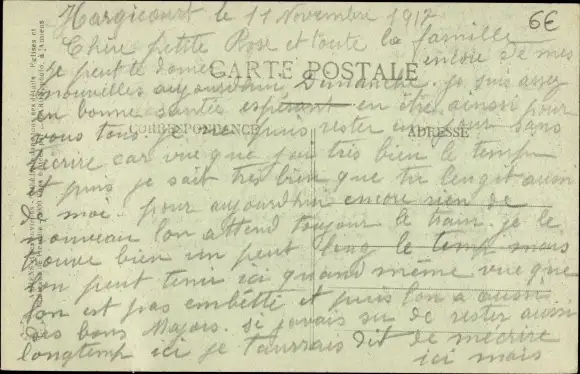 Hargicourt le 11 Novembre 1917
6€
Chère petite Rose et toute la famille
Je peut te donner encore de mes
CARTE POSTALE
nouvelles aujourdhui Dimanche. je suis assez
en bonne santée espérant en etre ainsi pour
vous tous. je ne puis rester un jour sans
CORRESPONDANCE
ADRESSE
t'écrire car vue que j'ai très bien le temp
et puis je sait très bien que tu lengui aussi
de moi. pour aujourdhui encore rien de
nouveau lon attend toujour le train. je le
trouve bien un peut long le temp mais
lon peut tenir ici quand même vue que
lon est pas embétté et puis lon a aussi
des bons Majors. si javais su de rester aussi
longtemp ici je taurrais dit de mécrire
ici mais